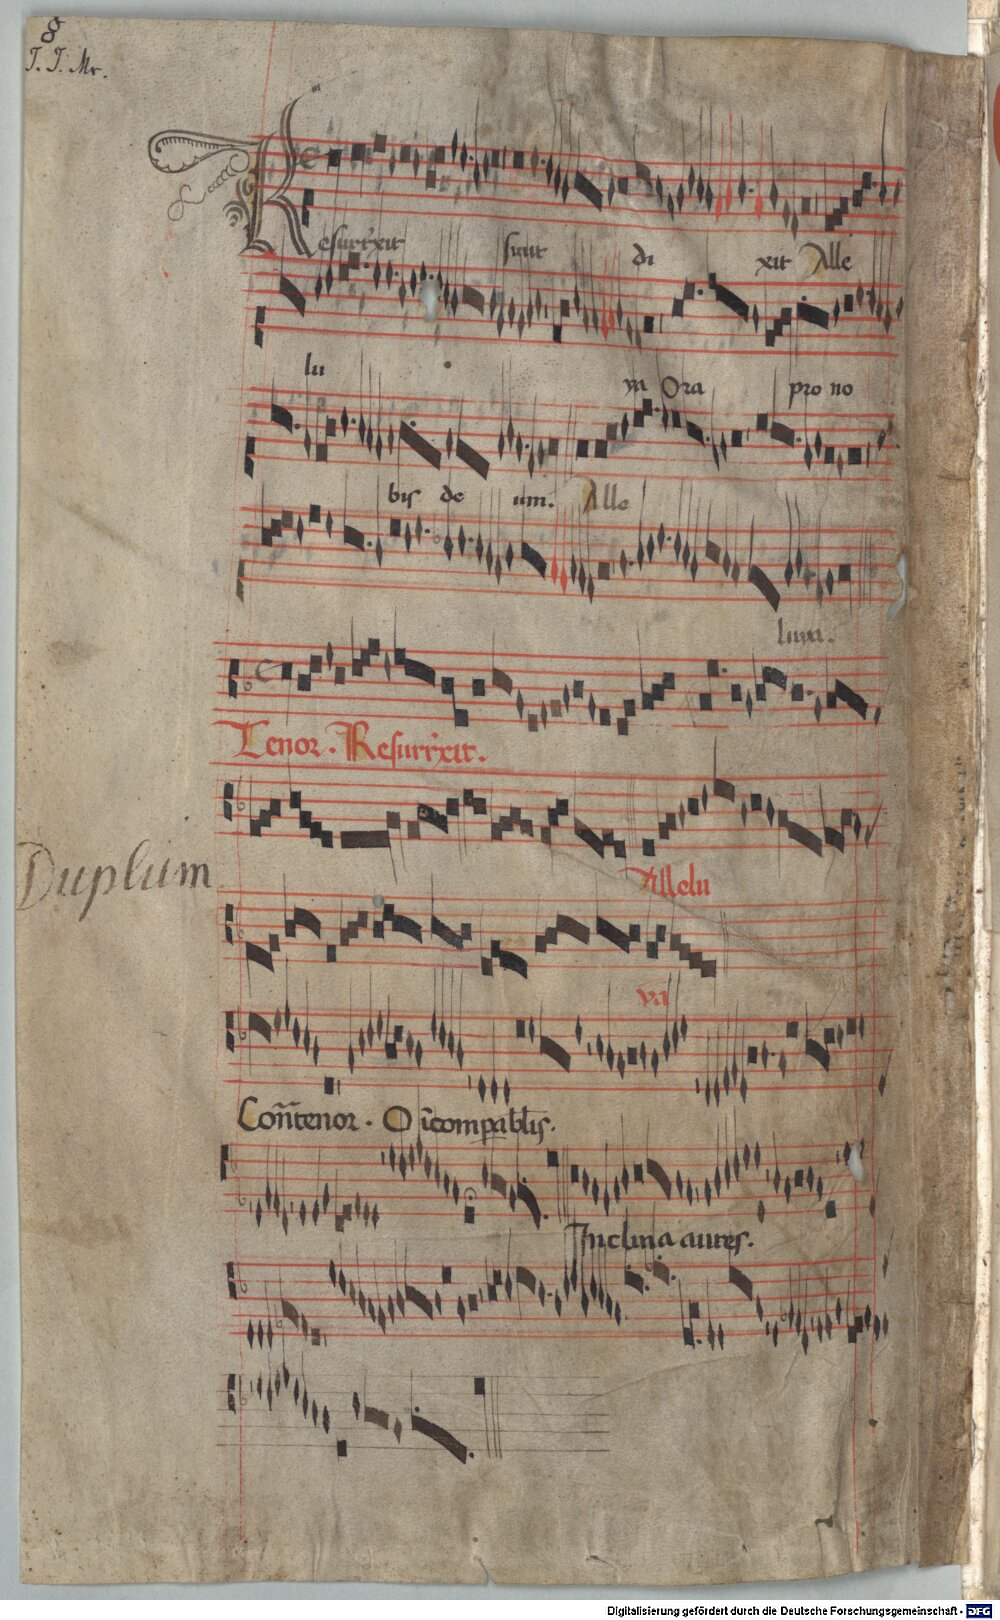 8
J. J. Mr.
Resurrexit sicut di xit Alle
lu ya Ora pro no
bis de um. Alle
luya.
Tenor. Resurrexit.
Allelu
Duplum
ya
Contratenor. O incomparabilis.
Inclina aures.
Digitalisierung gefördert durch die Deutsche Forschungsgemeinschaft - DFG